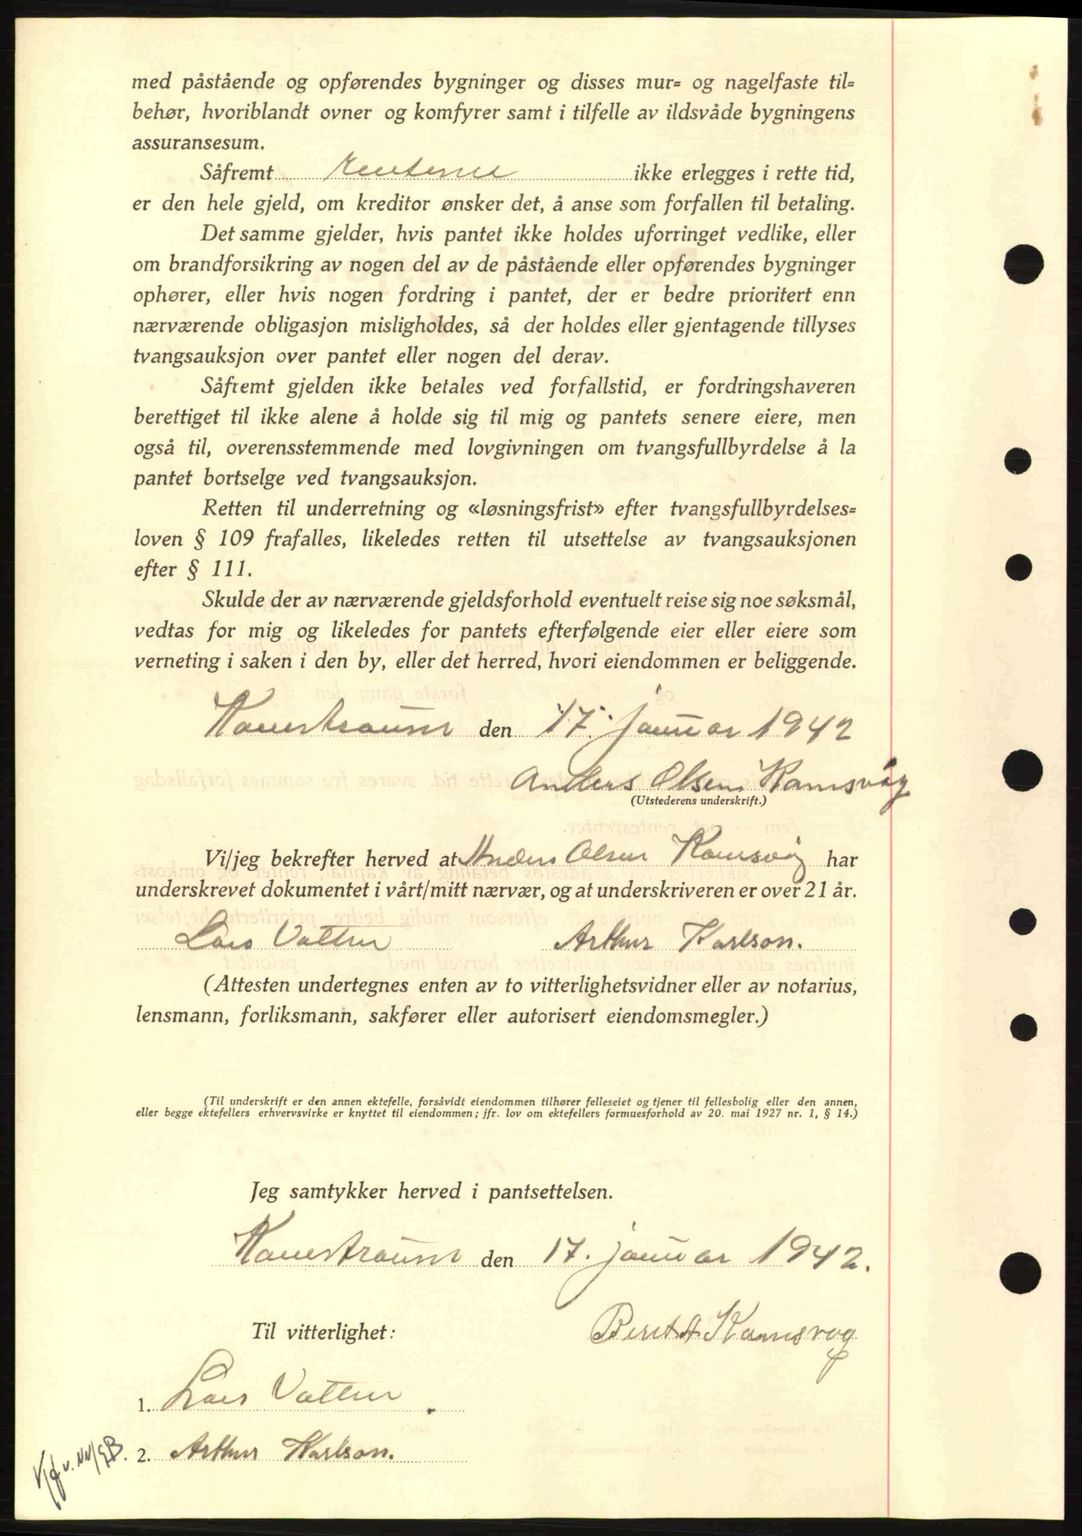 med påstående og opførendes bygninger og disses mur= og nagelfaste til=
behør, hvoriblandt ovner og komfyrer samt i tilfelle av ildsvåde bygningens
assuransesum.
Såfremt renterne ikke erlegges i rette tid,
er den hele gjeld, om kreditor ønsker det, å anse som forfallen til betaling.
Det samme gjelder, hvis pantet ikke holdes uforringet vedlike, eller
om brandforsikring av nogen del av de påstående eller opførendes bygninger
ophører, eller hvis nogen fordring i pantet, der er bedre prioritert enn
nærværende obligasjon misligholdes, så der holdes eller gjentagende tillyses
tvangsauksjon over pantet eller nogen del derav.
Såfremt gjelden ikke betales ved forfallstid, er fordringshaveren
berettiget til ikke alene å holde sig til mig og pantets senere eiere, men
også til, overensstemmende med lovgivningen om tvangsfullbyrdelse å la
pantet bortselge ved tvangsauksjon.
Retten til underretning og «løsningsfrist» efter tvangsfullbyrdelses=
loven § 109 frafalles, likeledes retten til utsettelse av tvangsauksjonen
efter § 111.
Skulde der av nærværende gjeldsforhold eventuelt reise sig noe søksmål,
vedtas for mig og likeledes for pantets efterfølgende eier eller eiere som
verneting i saken i den by, eller det herred, hvori eiendommen er beliggende.
den 17. januar 1942
Anders Olsen Ramsvåg
(Utstederens underskrift.)
Vi/jeg bekrefter herved at Anders Olsen Ramsvåg har
underskrevet dokumentet i vårt/mitt nærvær, og at underskriveren er over 21 år.
Lars Arthur Karlson.
(Attesten undertegnes enten av to vitterlighetsvidner eller av notarius,
lensmann, forliksmann, sakfører eller autorisert eiendomsmegler.)
(Til underskrift er den annen ektefelle, forsåvidt eiendommen tilhører felleseiet og tjener til fellesbolig eller den annen,
eller begge ektefellers erhvervsvirke er knyttet til eiendommen; jfr. lov om ektefellers formuesforhold av 20. mai 1927 nr. 1, § 14.)
Jeg samtykker herved i pantsettelsen.
den 17. januar 1942.
Til vitterlighet:
Beret A Ramsvog
1. Lars
2. Arthur Karlson.